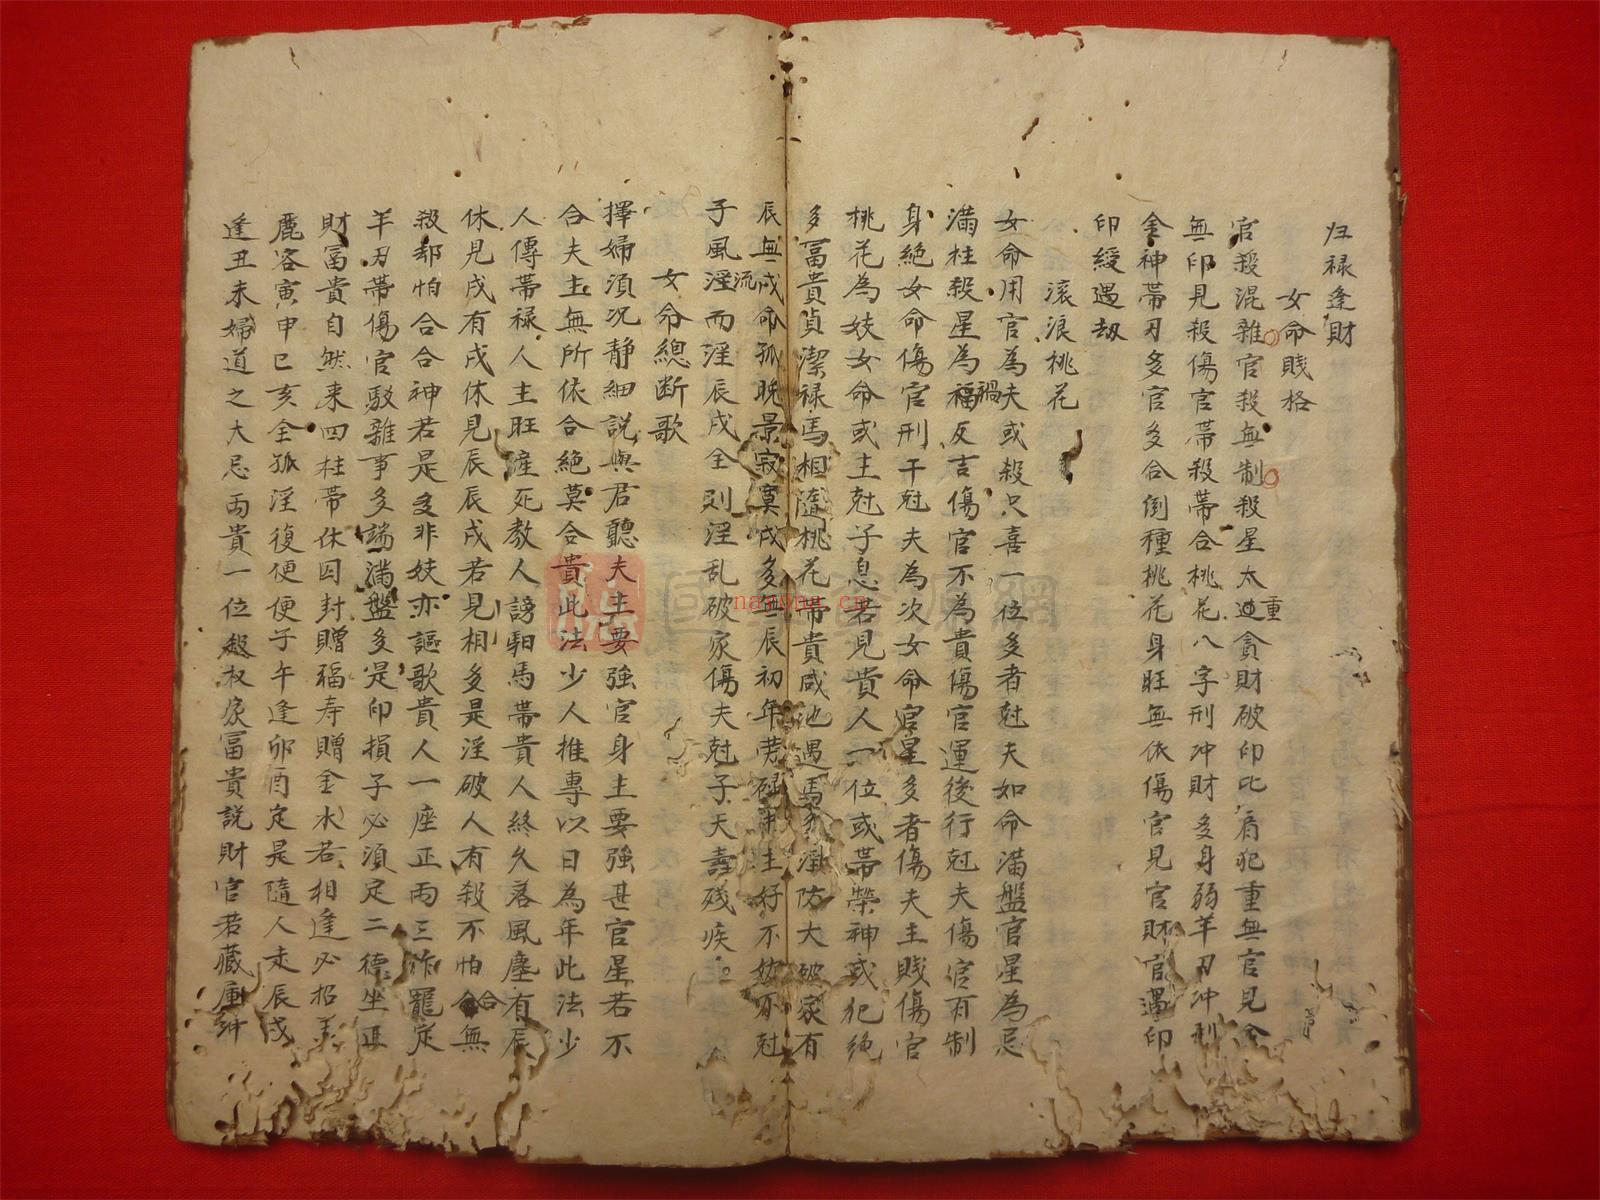 归禄逢財
女命賤格
官殺混雜官殺無制殺星太重貪財破印比肩犯重無官見合
無印見殺傷官帯殺帯合桃花八字刑冲財多身弱羊刃冲刑
金神帯刃多官多合倒種桃花身旺無依傷官見官財官遇印
印綬遇刧
滚浪桃花
女命用官為夫或殺只喜一位多者尅夫如命滿盤官星為忌
滿柱殺星為禍反吉傷官不為貴傷官運後行尅夫傷官有制
身絶女命傷官刑干尅夫為次女命官星多者傷夫主賤傷官
桃花為妓女命或主尅子息若見貴人一位或帯榮神或犯絶
多冨貴貞潔禄馬相隨桃花帯貴咸池遇馬多淫防大破家有
辰無戌命孤晚景寂寞戌多無辰初年労碌主好不妨不尅
子風流而淫辰戌全則淫乱破家傷夫尅子夭壽殘疾
女命總断歌
擇婦須况静細説與君聽夫主要強官身主要強甚官星若不
合夫主無所依合絶莫合貴此法少人推專以日為年此法少
人傳帯禄人主旺産死教人謗馹馬帯貴人終久落風塵有辰
休見戌有戌休見辰辰戌若見相多是淫破人有殺不怕合無
殺却怕合合神若是多非妓亦謳歌貴人一座正两三作寵定
羊刃帯傷官駁雜事多端滿盤多是印損子必須定二德坐正
財冨貴自然来四柱帯休囚封贈福寿贈金水若相逢必招美
麗容寅申巳亥全孤淫復便便子午逢卯酉定是隨人走辰戌
逢丑未婦道之大忌两貴一位殺权家冨貴説財官若藏庫冲
國學資源網
nayong.cn